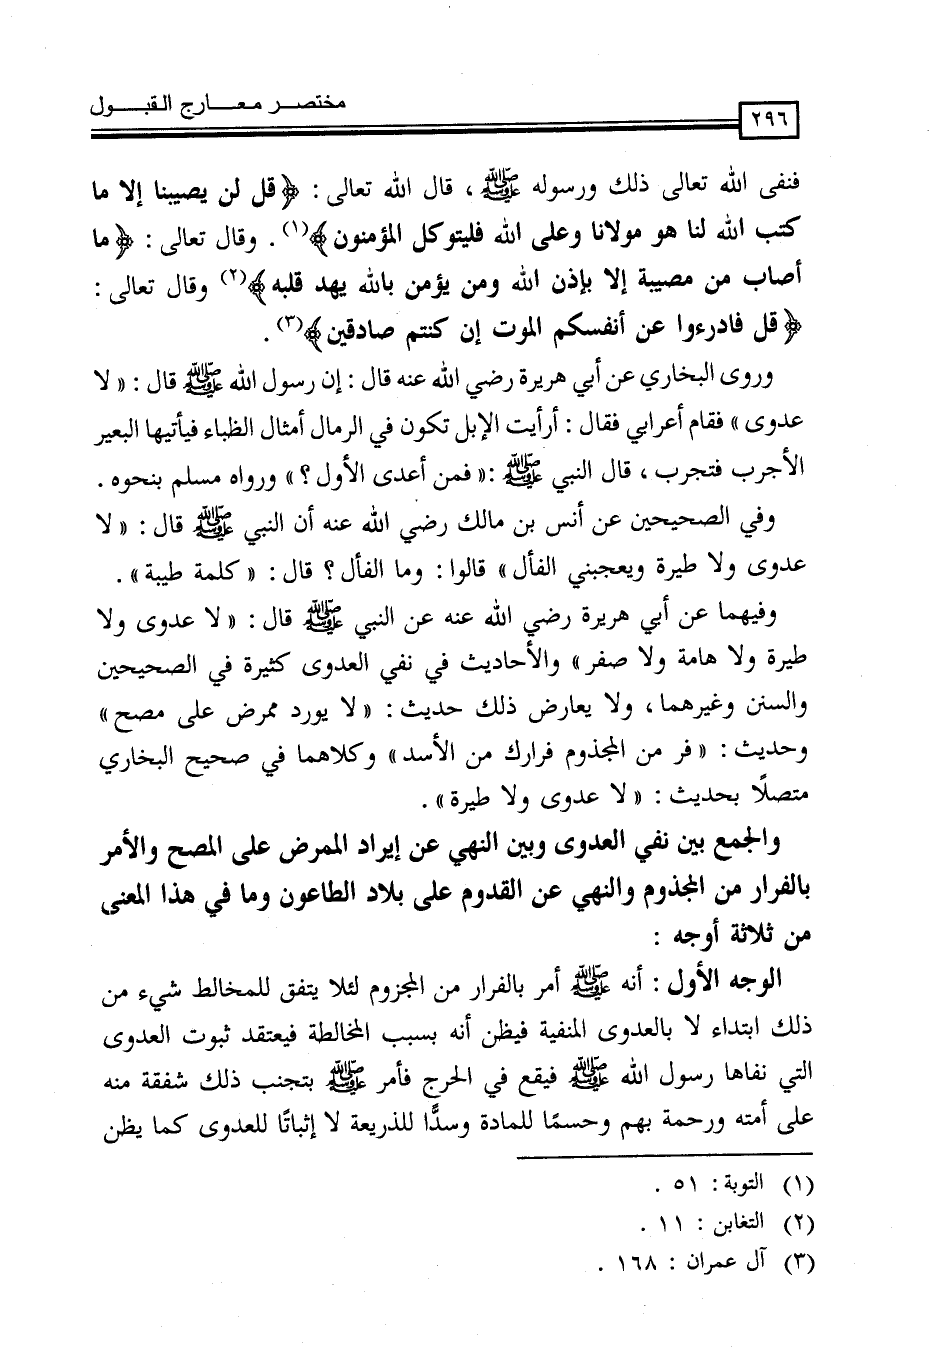 مختصر معارج القبول
٢٩٦
فنفى الله تعالى ذلك ورسوله ﷺ ، قال الله تعالى : ﴿قل لن يصيبنا إلا ما
كتب الله لنا هو مولانا وعلى الله فليتوكل المؤمنون﴾(١) . وقال تعالى : ﴿ما
أصاب من مصيبة إلا بإذن الله ومن يؤمن بالله يهد قلبه﴾(٢) وقال تعالى :
﴿قل فادرءوا عن أنفسكم الموت إن كنتم صادقين﴾(٣) .
وروى البخاري عن أبي هريرة رضي الله عنه قال : إن رسول الله ﷺ قال : « لا
عدوى » فقام أعرابي فقال : أرأيت الإبل تكون في الرمال أمثال الظباء فيأتيها البعير
الأجرب فتجرب ، قال النبي ﷺ :« فمن أعدى الأول ؟ » ورواه مسلم بنحوه .
وفي الصحيحين عن أنس بن مالك رضي الله عنه أن النبي ﷺ قال : « لا
عدوى ولا طيرة ويعجبني الفأل » قالوا : وما الفأل ؟ قال : « كلمة طيبة » .
وفيهما عن أبي هريرة رضي الله عنه عن النبي ﷺ قال : « لا عدوى ولا
طيرة ولا هامة ولا صفر » والأحاديث في نفي العدوى كثيرة في الصحيحين
والسنن وغيرهما ، ولا يعارض ذلك حديث : « لا يورد ممرض على مصح »
وحديث : « فر من المجذوم فرارك من الأسد » وكلاهما في صحيح البخاري
متصلًا بحديث : « لا عدوى ولا طيرة » .
والجمع بين نفي العدوى وبين النهي عن إيراد الممرض على المصح والأمر
بالفرار من المجذوم والنهي عن القدوم على بلاد الطاعون وما في هذا المعنى
من ثلاثة أوجه :
الوجه الأول : أنه ﷺ أمر بالفرار من المجزوم لئلا يتفق للمخالط شيء من
ذلك ابتداء لا بالعدوى المنفية فيظن أنه بسبب المخالطة فيعتقد ثبوت العدوى
التي نفاها رسول الله ﷺ فيقع في الحرج فأمر ﷺ بتجنب ذلك شفقة منه
على أمته ورحمة بهم وحسمًا للمادة وسدًّا للذريعة لا إثباتًا للعدوى كما يظن
(١) التوبة : ٥١ .
(٢) التغابن : ١١ .
(٣) آل عمران : ١٦٨ .